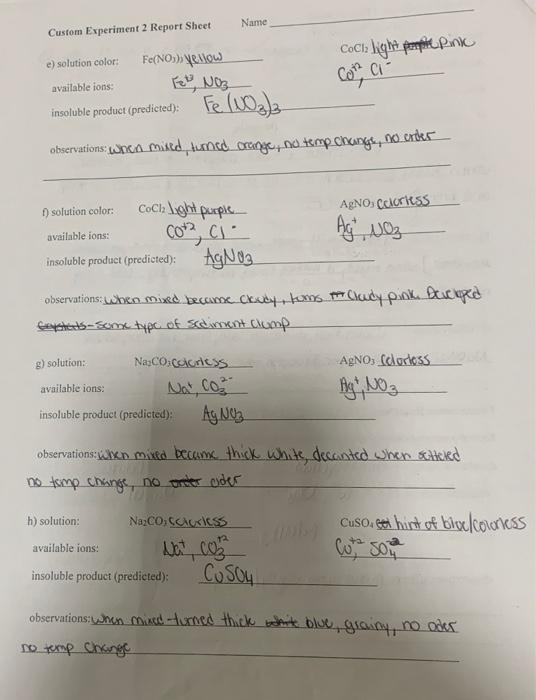 Custom Experiment 2 Report Sheet Name
e) solution color: Fe(NO₃)₃ yellow CoCl₂ light pink
available ions: Fe⁺³, NO₃ Co⁺², Cl⁻
insoluble product (predicted): Fe(NO₃)₃
observations: when mixed, turned orange, no temp change, no order
f) solution color: CoCl₂ light purple AgNO₃ colorless
available ions: Co⁺², Cl⁻ Ag⁺, NO₃
insoluble product (predicted): AgNO₃
observations: when mixed became cloudy, turns cloudy pink. Developed
some type of sediment clump
g) solution: Na₂CO₃ colorless AgNO₃ colorless
available ions: Na⁺, CO₃²⁻ Ag⁺, NO₃
insoluble product (predicted): AgNO₃
observations: when mixed became thick white, decanted when settled
no temp change, no oder
h) solution: Na₂CO₃ colorless CuSO₄ hint of blue/colorless
available ions: Na⁺, CO₃⁺² Cu⁺², SO₄
insoluble product (predicted): CuSO₄
observations: when mixed-turned thick blue, grainy, no oder
no temp change